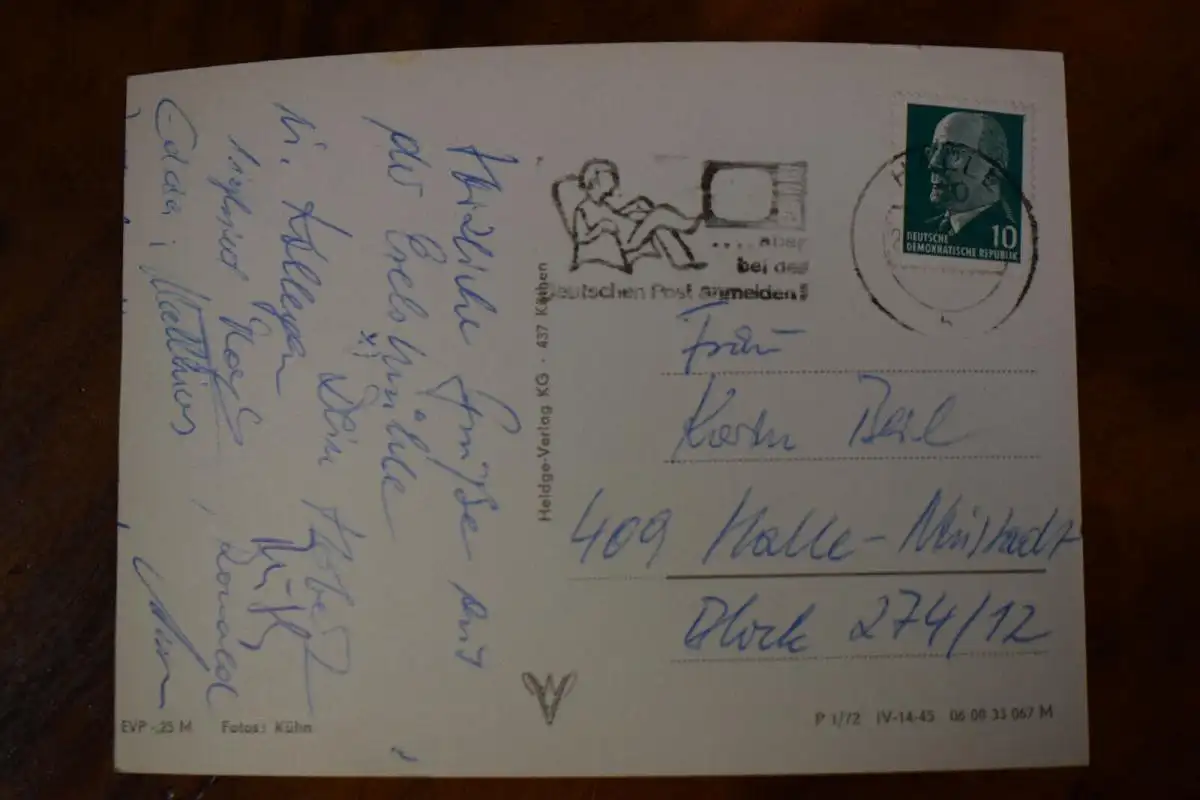 Herzliche Grüße aus
der Eselsmühle
Dein Hobert
u. Kollegen
Edda, Matthias
Ronald
.... aber
bei der
Deutschen Post anmelden!
10
DEUTSCHE
DEMOKRATISCHE REPUBLIK
Frau
Karin Beil
409 Halle-Neustadt
Block 274/12
Heldge-Verlag KG · 437 Köthen
EVP -,25 M Fotos: Kühn
P 1/72 IV-14-45 06 08 35 067 M